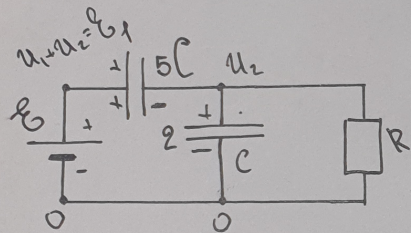 u₁+u₂=ℰ₁
5C
u₂
ℰ
+
+
-
+
-
+
-
2
C
R
0
0